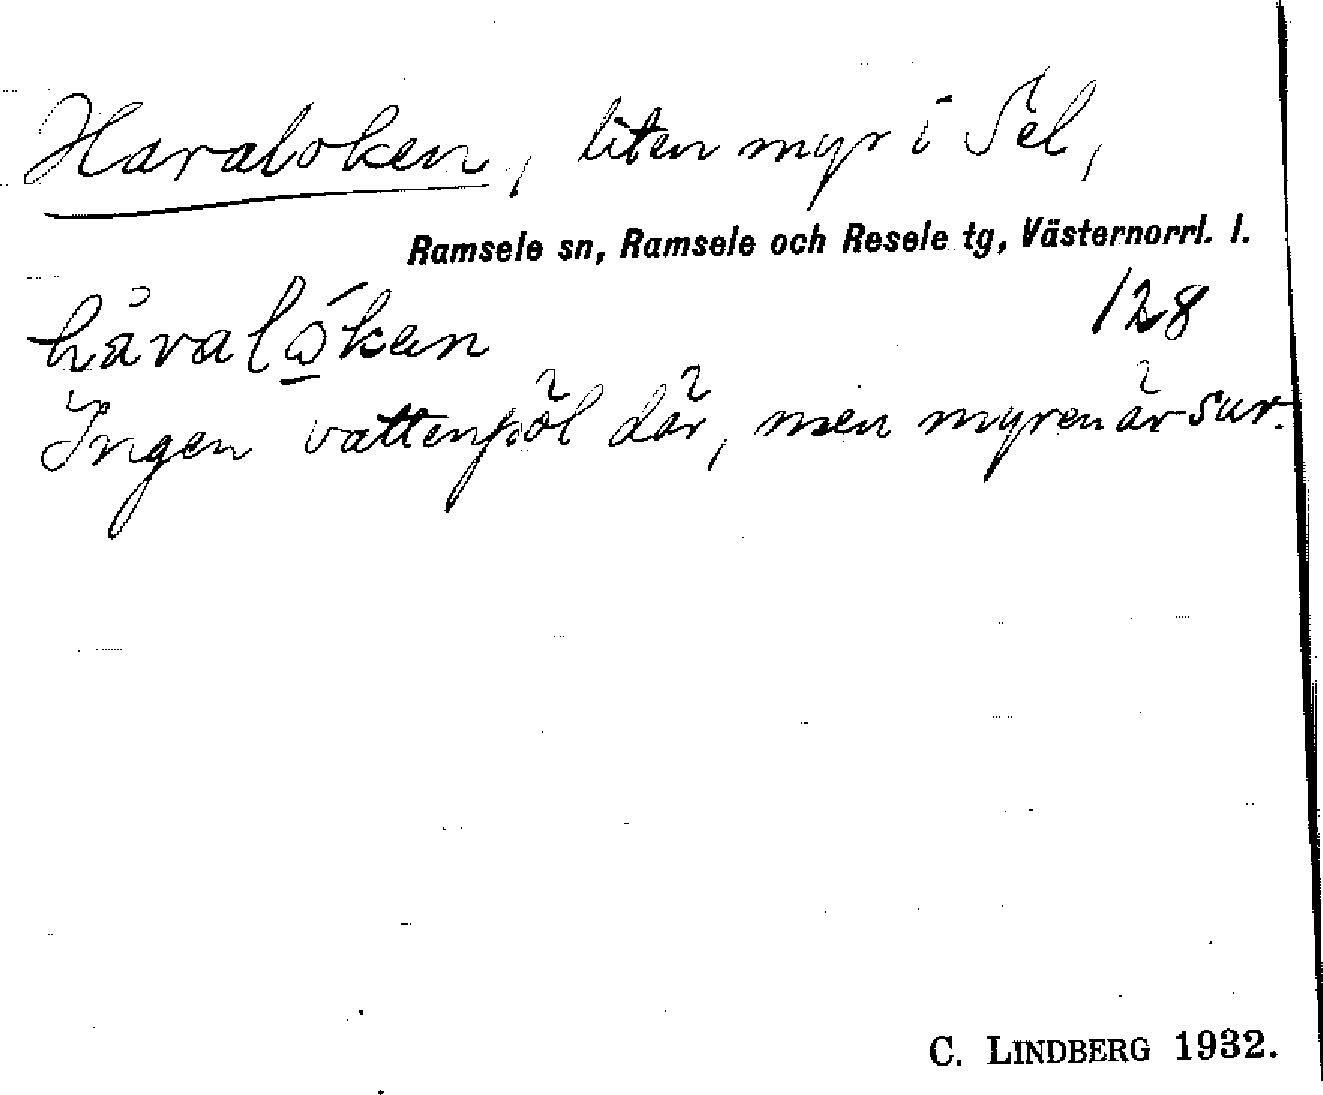 Haraloken, liten myr i Sel,
Ramsele sn, Ramsele och Resele tg, Västernorrl. l.
håraló̲ken 128
Ingen vattenpöl där, men myren är sur.
C. LINDBERG 1932.